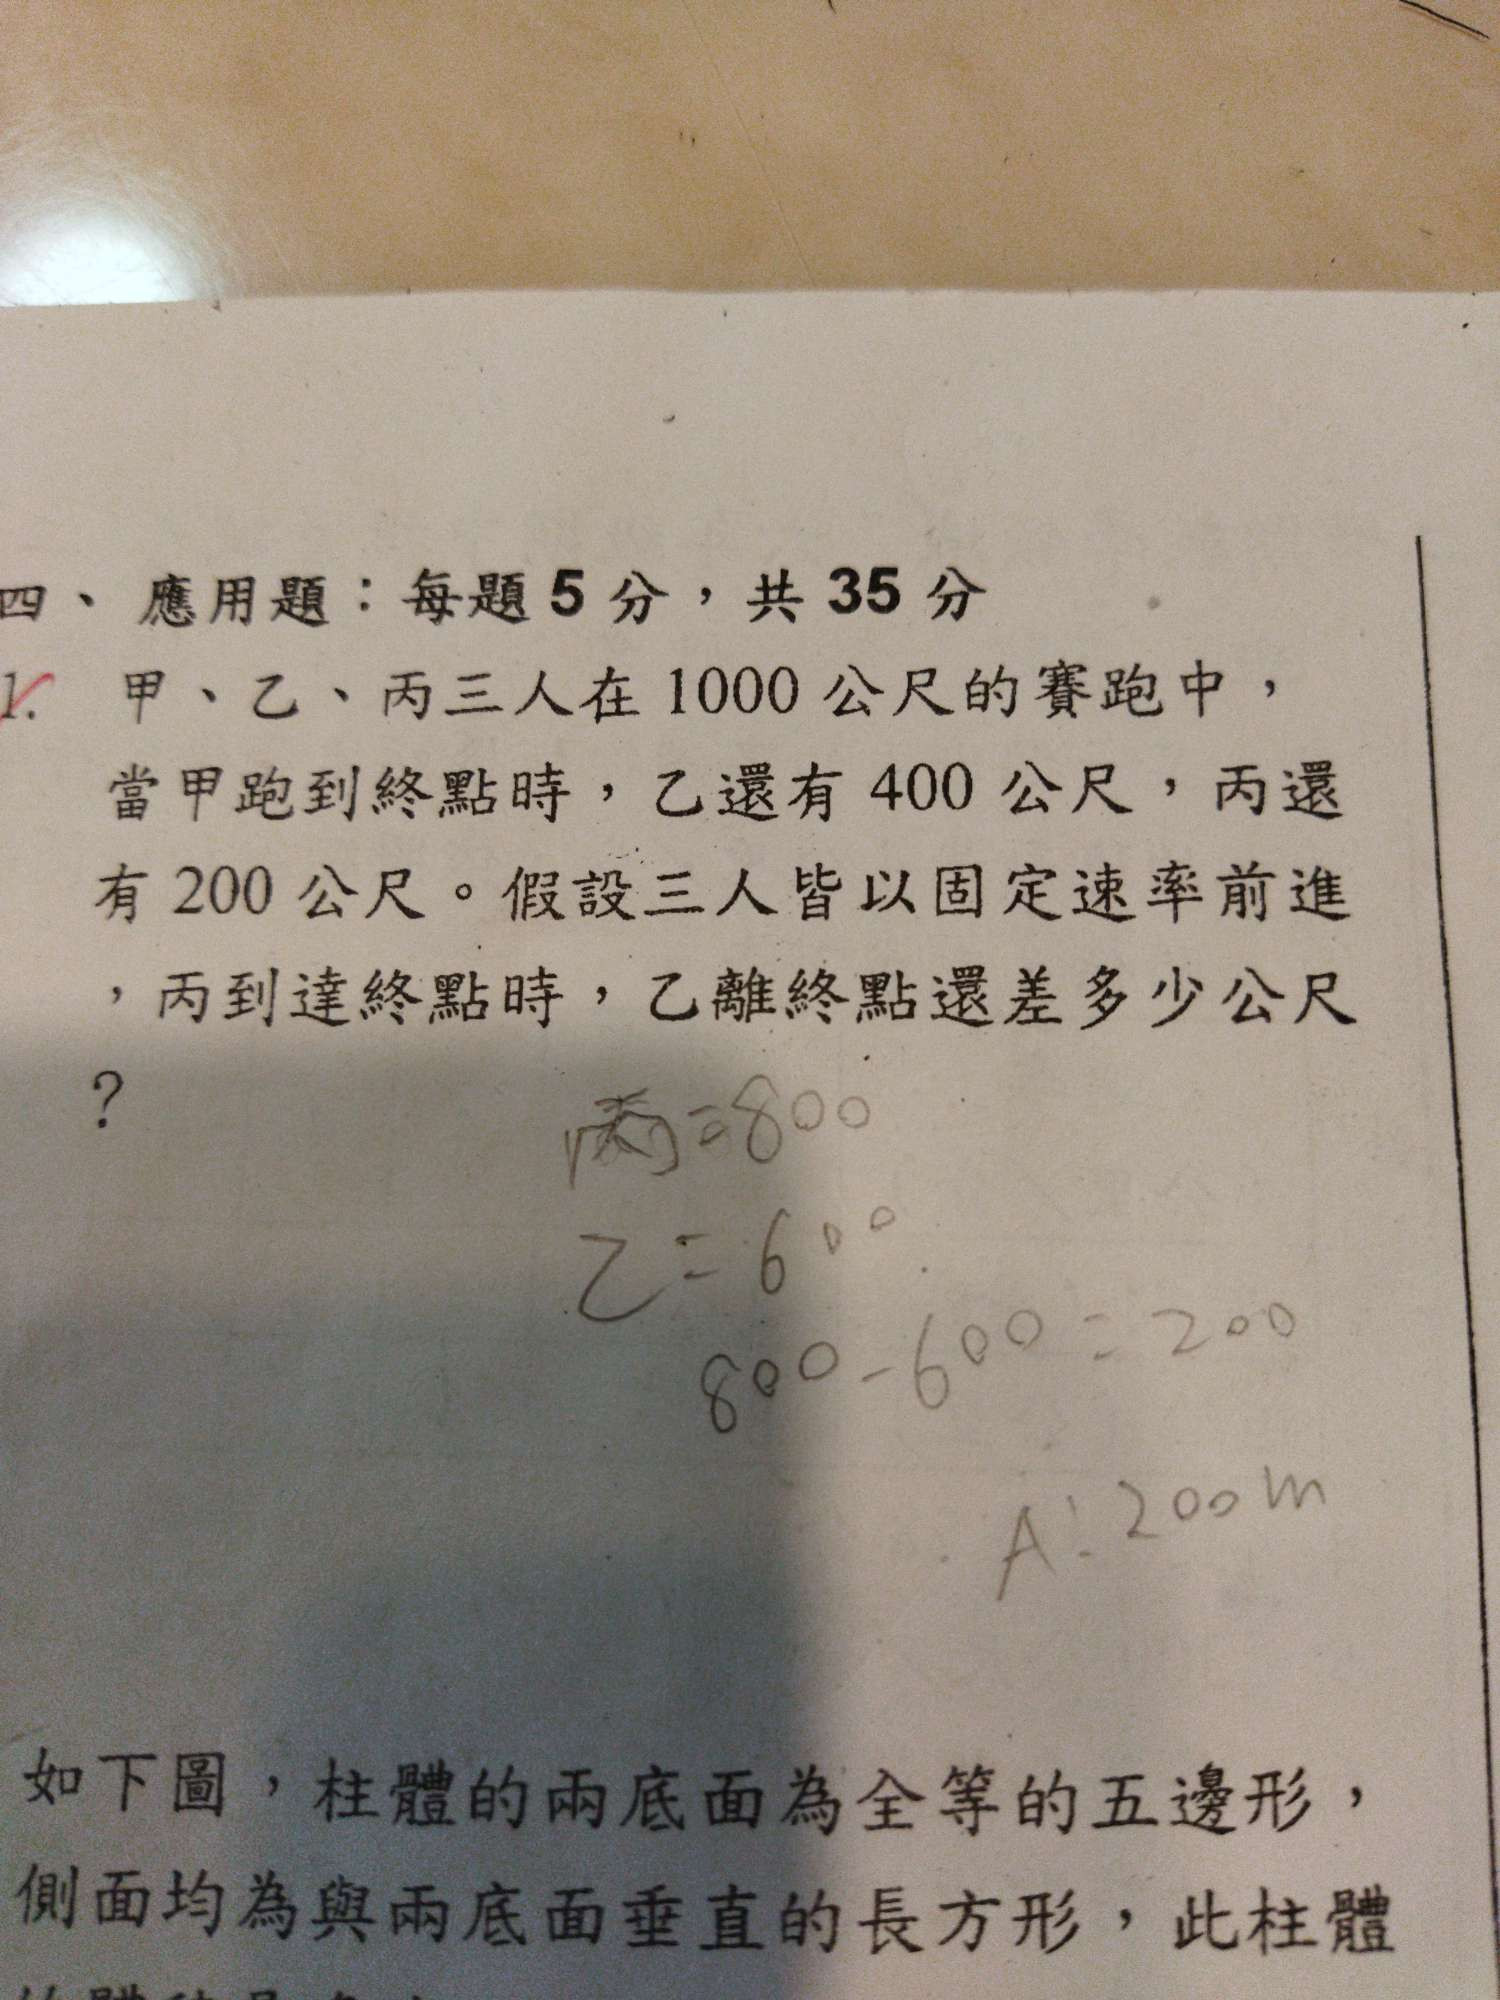 四、應用題：每題 5 分，共 35 分
1. 甲、乙、丙三人在 1000 公尺的賽跑中，
當甲跑到終點時，乙還有 400 公尺，丙還
有 200 公尺。假設三人皆以固定速率前進
，丙到達終點時，乙離終點還差多少公尺
？
丙=800
乙=600
800-600=200
A:200m
如下圖，柱體的兩底面為全等的五邊形，
側面均為與兩底面垂直的長方形，此柱體